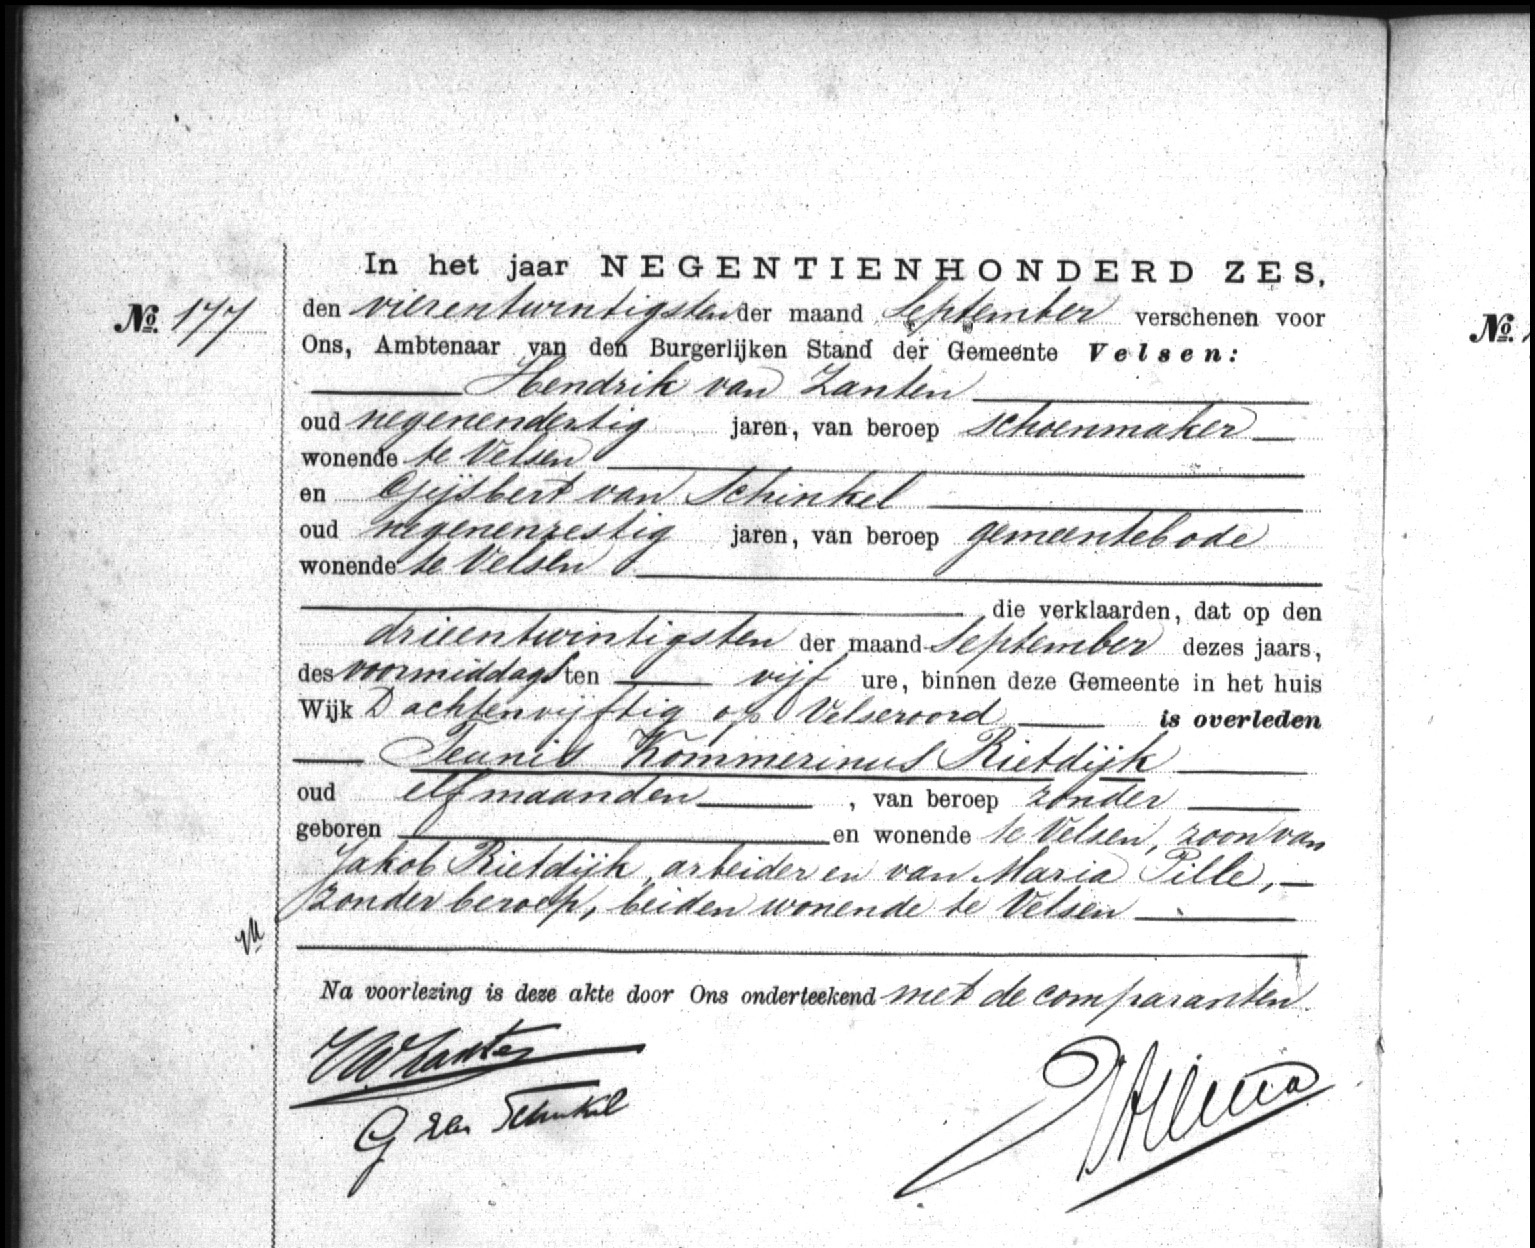 In het jaar NEGENTIENHONDERD ZES,
No. 177 den vierentwintigsten der maand September verschenen voor
Ons, Ambtenaar van den Burgerlijken Stand der Gemeente Velsen:
Hendrik van Zanten
oud negenendertig jaren, van beroep schoenmaker
wonende te Velsen
en Gijsbert van Schinkel
oud negenenzestig jaren, van beroep gemeentebode
wonende te Velsen
die verklaarden, dat op den
drieentwintigsten der maand September dezes jaars,
des voormiddags ten vijf ure, binnen deze Gemeente in het huis
Wijk D achtenvijftig op Velseroord is overleden
Teunis Kommerinus Rietdijk
oud elf maanden, van beroep zonder
geboren en wonende te Velsen, zoon van
Jakob Rietdijk, arbeider en van Maria Pille,
zonder beroep, beiden wonende te Velsen
Na voorlezing is deze akte door Ons onderteekend met de comparanten
HV Zanten
G van Schinkel
No.